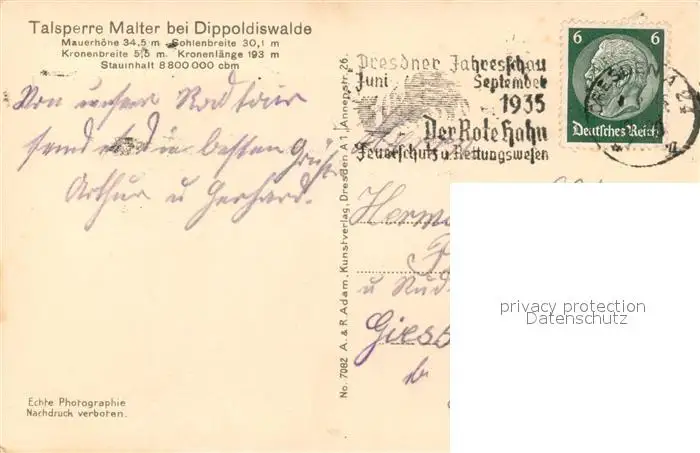 Talsperre Malter bei Dippoldiswalde
Mauerhöhe 34,5 m - Sohlenbreite 30,1 m
Kronenbreite 5,5 m Kronenlänge 193 m
Stauinhalt 8 800 000 cbm
Von unserer Radtour
send die besten Grüße
Arthur u Gerhard.
Echte Photographie
Nachdruck verboten.
No. 7082 A. & R. Adam, Kunstverlag, Dresden A 1, Annenstr. 26.
Dresdner Jahresschau
Juni September
1935
Der Rote Hahn
Feuerschutz u. Rettungswesen
6 6
Deutsches Reich
DRESDEN
Herm
u Rud
Giess
privacy protection
Datenschutz